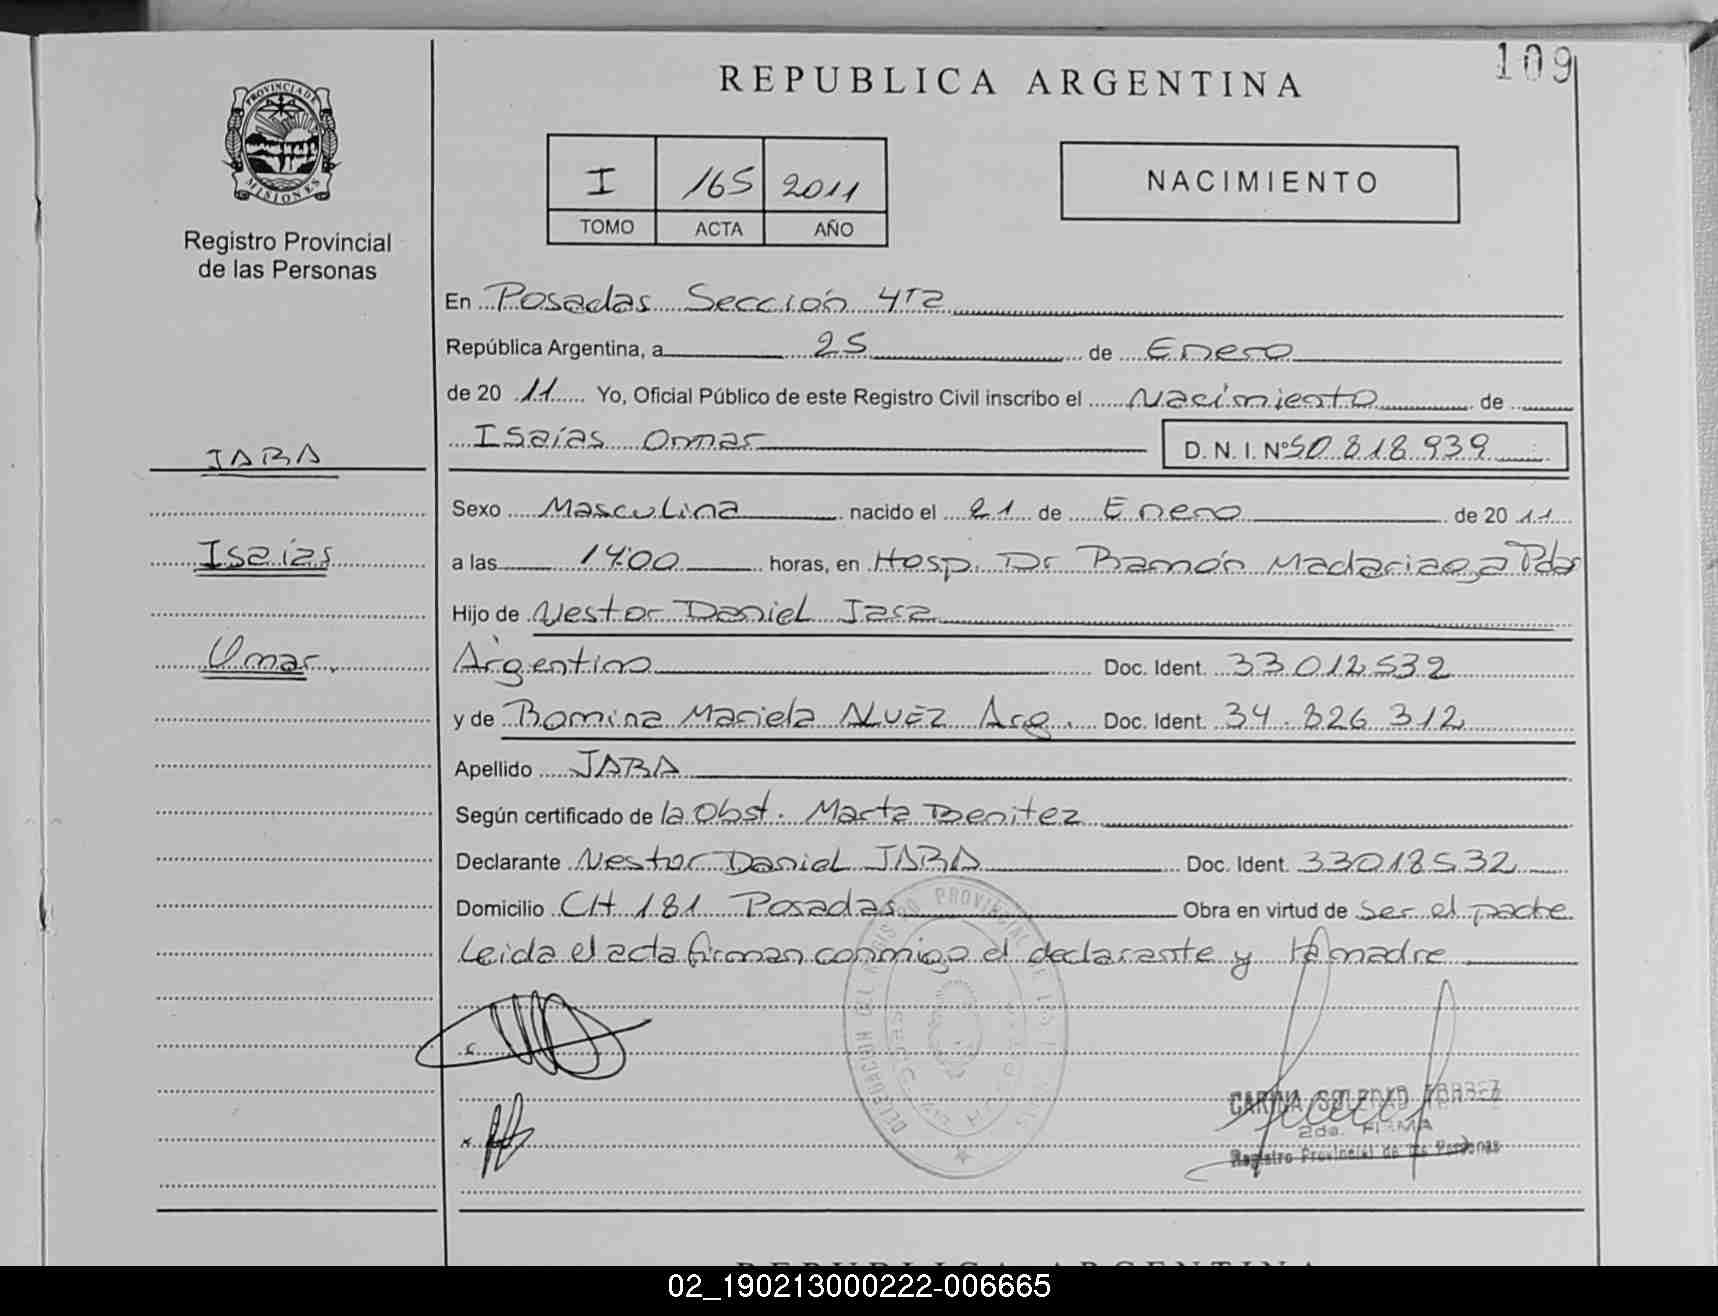 109
REPUBLICA ARGENTINA
PROVINCIA DE
MISIONES
Registro Provincial
de las Personas
I 165 2011
TOMO ACTA AÑO
NACIMIENTO
En Posadas Sección 4ta
República Argentina, a 25 de Enero
de 20 11 Yo, Oficial Público de este Registro Civil inscribo el Nacimiento de
Isaías Omar
D. N. I. Nº 50.818.939
JARA
Isaías
Omar.
Sexo Masculino nacido el 21 de Enero de 20 11
a las 14:00 horas, en Hosp. Dr Ramón Madariaga Pdas
Hijo de Nestor Daniel Jara
Argentino Doc. Ident. 33.012.532
y de Romina Mariela ALVEZ Arg. Doc. Ident. 34.826.312
Apellido JARA
Según certificado de la Obst. Marta Benitez
Declarante Nestor Daniel JARA Doc. Ident. 33.018.532
Domicilio CH 181 Posadas Obra en virtud de ser el padre
Leida el acta firman conmigo el declarante y la madre
CARINA SOLEDAD TORREZ
2da. FIRMA
Registro Provincial de las Personas
REPUBLICA ARGENTINA
02_190213000222-006665